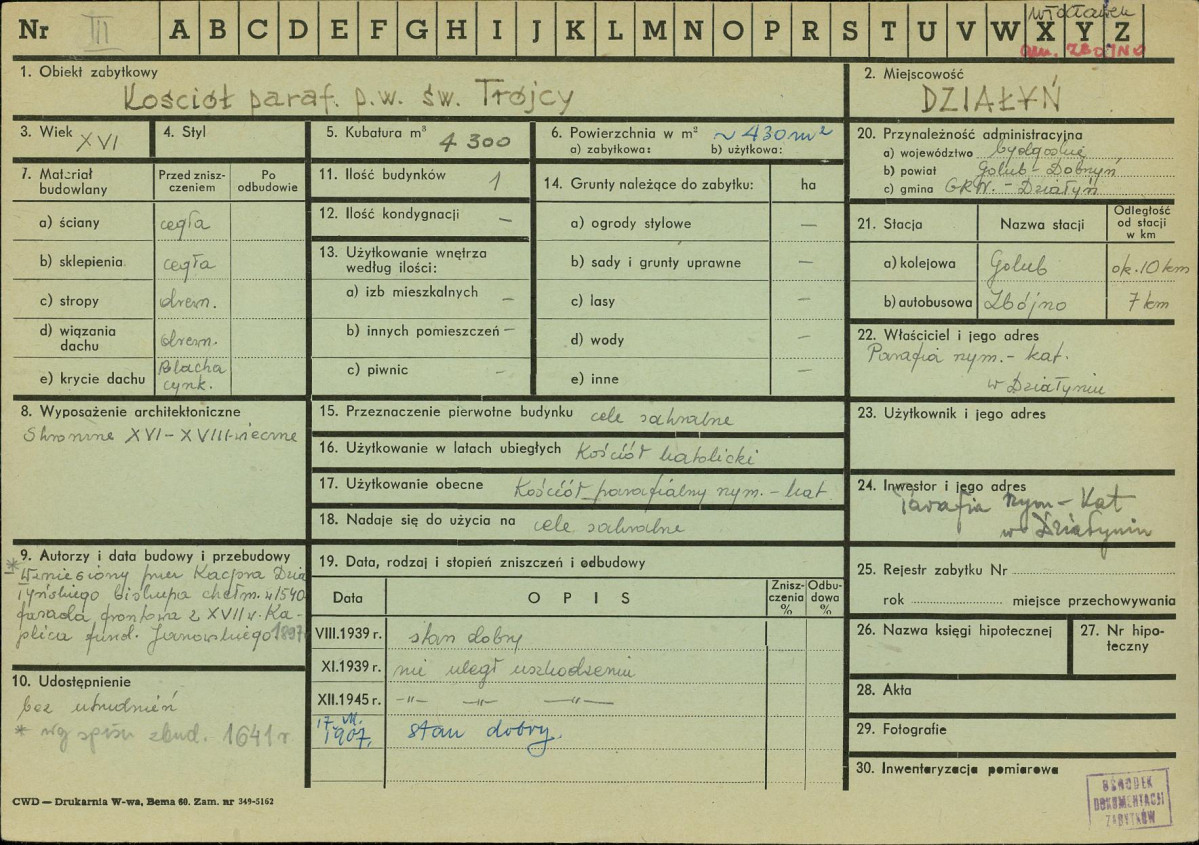 Nr III A B C D E F G H I J K L M N O P R S T U V W X Y Z
Włocławek
gm. ZBÓJNO
1. Obiekt zabytkowy
Kościół paraf. p.w. św. Trójcy
2. Miejscowość
DZIAŁYŃ
3. Wiek
XVI
4. Styl
5. Kubatura m³
4 300
6. Powierzchnia w m² ~ 430 m²
a) zabytkowa: b) użytkowa:
7. Materiał budowlany
Przed zniszczeniem
Po odbudowie
a) ściany cegła
b) sklepienia cegła
c) stropy drewn.
d) wiązania dachu drewn.
e) krycie dachu Blacha cynk.
8. Wyposażenie architektoniczne
Skromne XVI – XVIII-wieczne
9. Autorzy i data budowy i przebudowy
* Wzniesiony przez Kacpra Dzia
łyńskiego biskupa chełm. w 1540
fasada frontowa z XVII w. Ka-
plica fund. Janowskiego 1897
10. Udostępnienie
bez utrudnień
* wg spisu zbud. 1641 r
11. Ilość budynków 1
12. Ilość kondygnacji –
13. Użytkowanie wnętrza według ilości:
a) izb mieszkalnych –
b) innych pomieszczeń –
c) piwnic –
14. Grunty należące do zabytku: ha
a) ogrody stylowe –
b) sady i grunty uprawne –
c) lasy –
d) wody –
e) inne –
15. Przeznaczenie pierwotne budynku cele sakralne
16. Użytkowanie w latach ubiegłych Kościół katolicki
17. Użytkowanie obecne Kościół parafialny rzym. – kat.
18. Nadaje się do użycia na cele sakralne
19. Data, rodzaj i stopień zniszczeń i odbudowy
Data
O P I S
Zniszczenia %
Odbudowa %
VIII.1939 r. stan dobry
XI.1939 r. nie uległ uszkodzeniu
XII.1945 r. –"– –"– –"–
stan dobry.
20. Przynależność administracyjna
a) województwo bydgoskie
b) powiat Golub - Dobrzyń
c) gmina GRN. - Działyń
21. Stacja
Nazwa stacji
Odległość od stacji w km
a) kolejowa Golub ok. 10 km
b) autobusowa Zbójno 7 km
22. Właściciel i jego adres
Parafia rzym. – kat.
w Działyniu
23. Użytkownik i jego adres
24. Inwestor i jego adres
Parafia rzym – Kat
w Działyniu
25. Rejestr zabytku Nr
rok miejsce przechowywania
26. Nazwa księgi hipotecznej
27. Nr hipoteczny
28. Akta
29. Fotografie
30. Inwentaryzacja pomiarowa
OŚRODEK
DOKUMENTACJI
ZABYTKÓW
CWD — Drukarnia W-wa, Bema 60. Zam. nr 349-5162